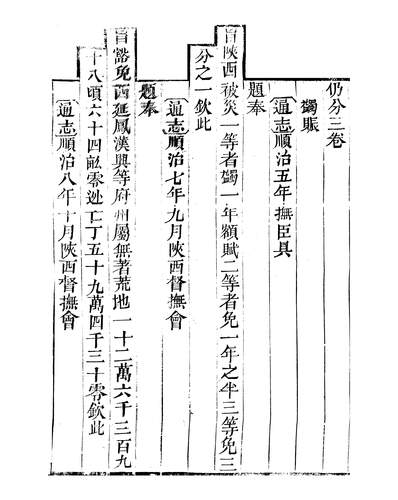 仍分三卷
蠲賑
通志順治五年撫臣具
題奉
旨陝西被災一等者蠲一年額賦二等者免一年之半三等免三
分之一欽此
通志順治七年九月陝西督撫會
題奉
旨豁免西延鳳漢興等府州屬無著荒地一十二萬六千三百九
十八頃六十四畝零逃亡丁五十九萬四千三十零欽此
通志順治八年十月陝西督撫會